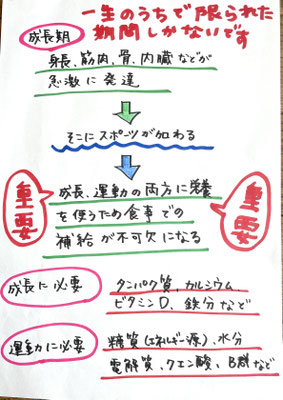 一生のうちで限られた
期間しかないです
成長期
身長、筋肉、骨、内臓などが
急激に発達
そこにスポーツが加わる
重要
成長、運動の両方に栄養
を使うため食事での
補給が不可欠になる
重要
成長に必要
タンパク質、カルシウム
ビタミンD、鉄分など
運動に必要
糖質(エネルギー源)、水分
電解質、クエン酸、B群など